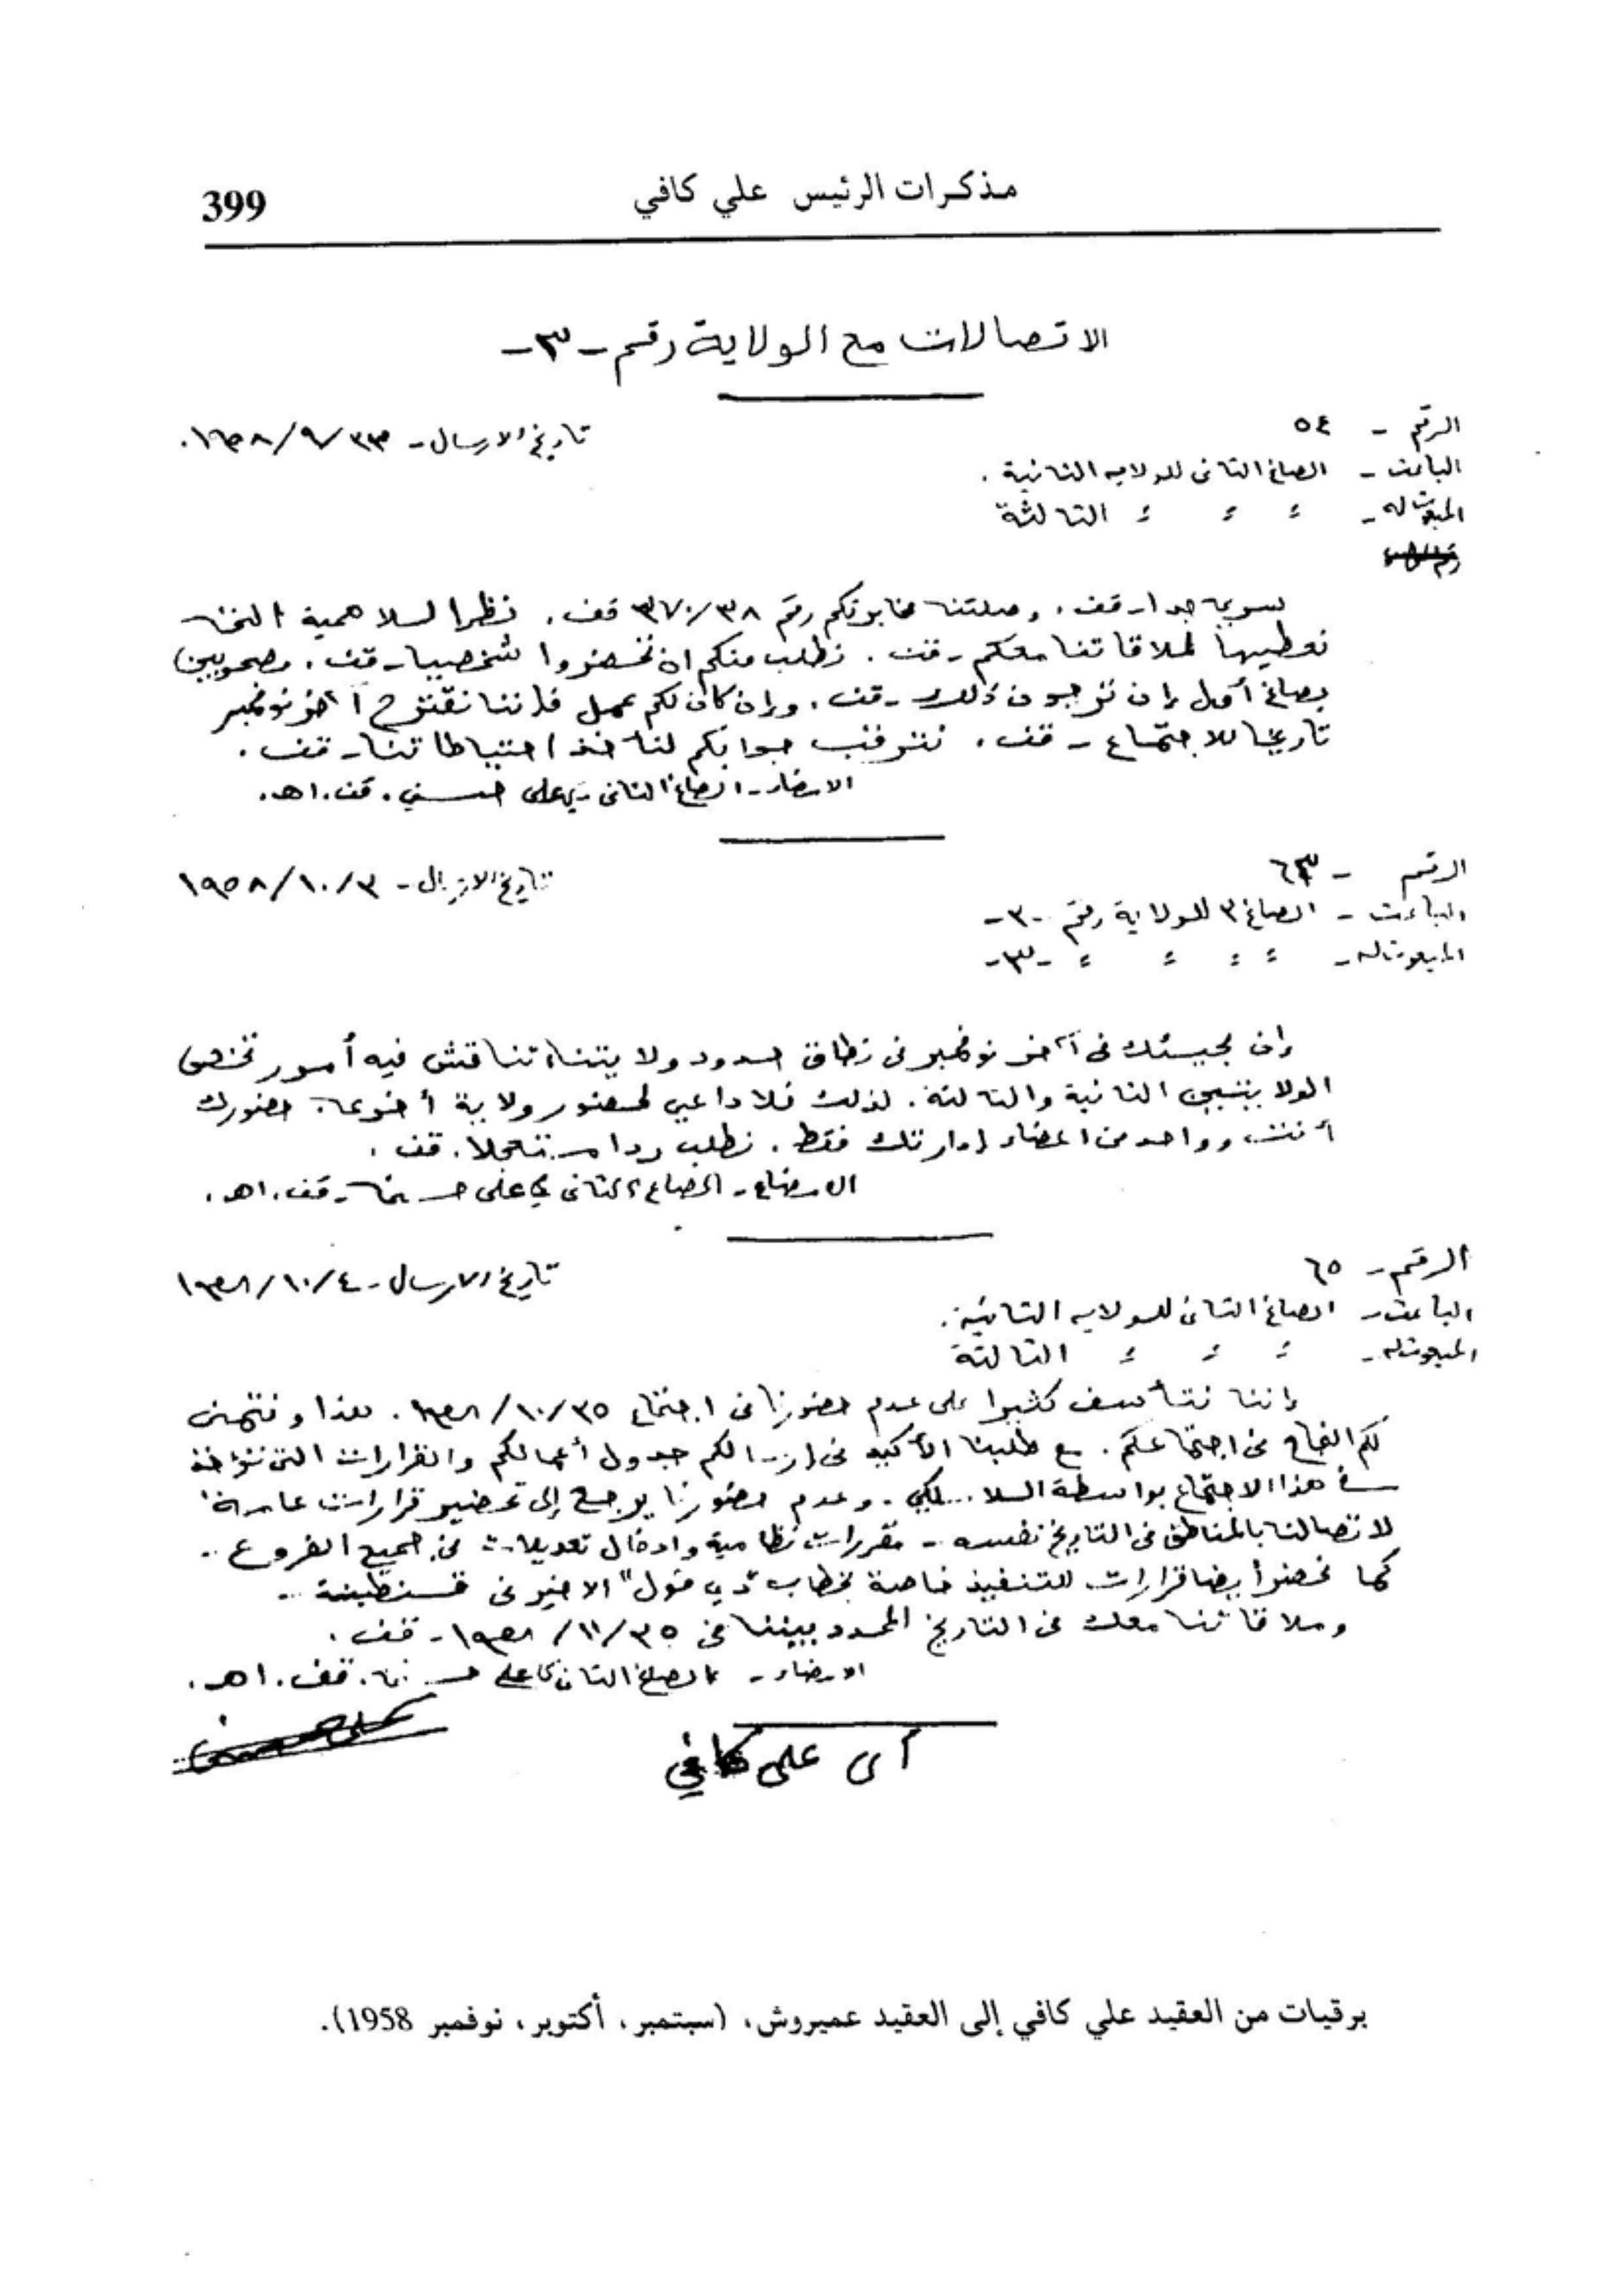 399
مذكرات الرئيس علي كافي
الاتصالات مع الولاية رقم -٣-
الرقم - ٥٤
تاريخ الارسال - ٢٣/٩/١٩٥٨.
الباعث - الصاغ الثاني للولايه الثانية .
المبعوث له - = = = الثالثة
جوابا - قف . وصلتنا مخابرتكم رقم ٣٨/٣٧٠ قف . نظرا للاهمية التي
نعطيها لملاقاتنا معكم - قف . نطلب منكم ان تحضروا شخصيا - قف . مصحوبين
بصاغ أول إن ترجون ذلك - قف . وإن كان لكم عمل فإننا نقترح آخر نوفمبر
تاريخا للاجتماع - قف . نترقب جوابكم لنأخذ احتياطاتنا - قف .
الامضاء - الصاغ الثاني سي علي حسني . قف . اهـ .
الرقم - ٦٣
تاريخ الارسال - ٣/١٠/١٩٥٨
الباعث - الصاغ ٢ للولاية رقم -٢-
المبعوث له - = = = = -٣-
إن مجيئك في آخر نوفمبر في نطاق حدود ولايتنا تناقش فيه أمور تخص
الولايتين الثانية والثالثة . لذلك فلا داعي لحضور ولاية أخرى . حضورك
أنت وواحد من اعضاء إدارتك فقط . نطلب ردا مستعجلا . قف .
الامضاء - الصاغ الثاني سي علي حسني - قف . اهـ .
الرقم - ٦٥
تاريخ الارسال - ٤/١٠/١٩٥٨
الباعث - الصاغ الثاني للولايه الثانية .
المبعوث له - = = = الثالثة
إننا نتأسف كثيرا على عدم حضورنا في اجتماع ٢٥/١٠/١٩٥٨ . هذا ونتمنى
لكم النجاح في اجتماعكم . مع طلبنا الأكيد في إرسالكم جدول أعمالكم والقرارات التي تؤخذ
في هذا الاجتماع بواسطة اللاسلكي . وعدم حضورنا يرجع إلى تحضير قرارات عامة
لاتصالنا بالمناطق في التاريخ نفسه - مقررات نظامية وادخال تعديلات في جميع الفروع -
كما نحضر أيضا قرارات للتنفيذ خاصة بخطاب "دي قول" الاخير في قسنطينة -
وملاقاتنا معك في التاريخ المحدد بيننا في ٢٥/١١/١٩٥٨ - قف .
الامضاء - الصاغ الثاني سي علي حسني . قف . اهـ .
علي حسني
سي علي كافي
برقيات من العقيد علي كافي إلى العقيد عميروش، (سبتمبر، أكتوبر، نوفمبر 1958).